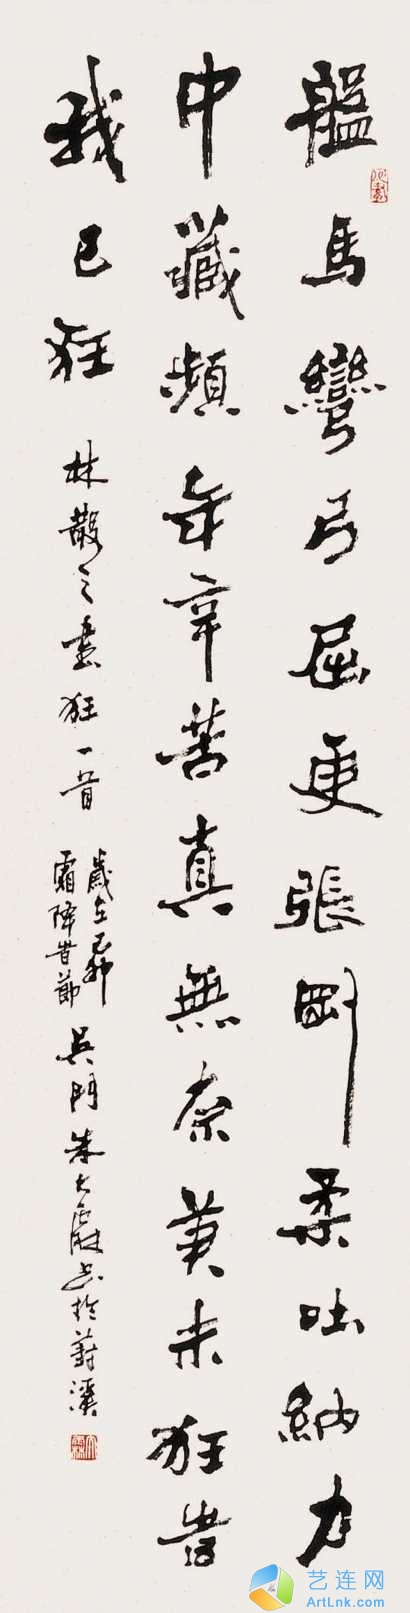 盤馬彎弓屈更張剛柔吐納力
中藏頻年辛苦真無奈筆未狂旹
我已狂
林散之書狂一首
歲在己卯
霜降旹節
吳門朱大霖書於葑溪
艺连网
ArtLnk.com